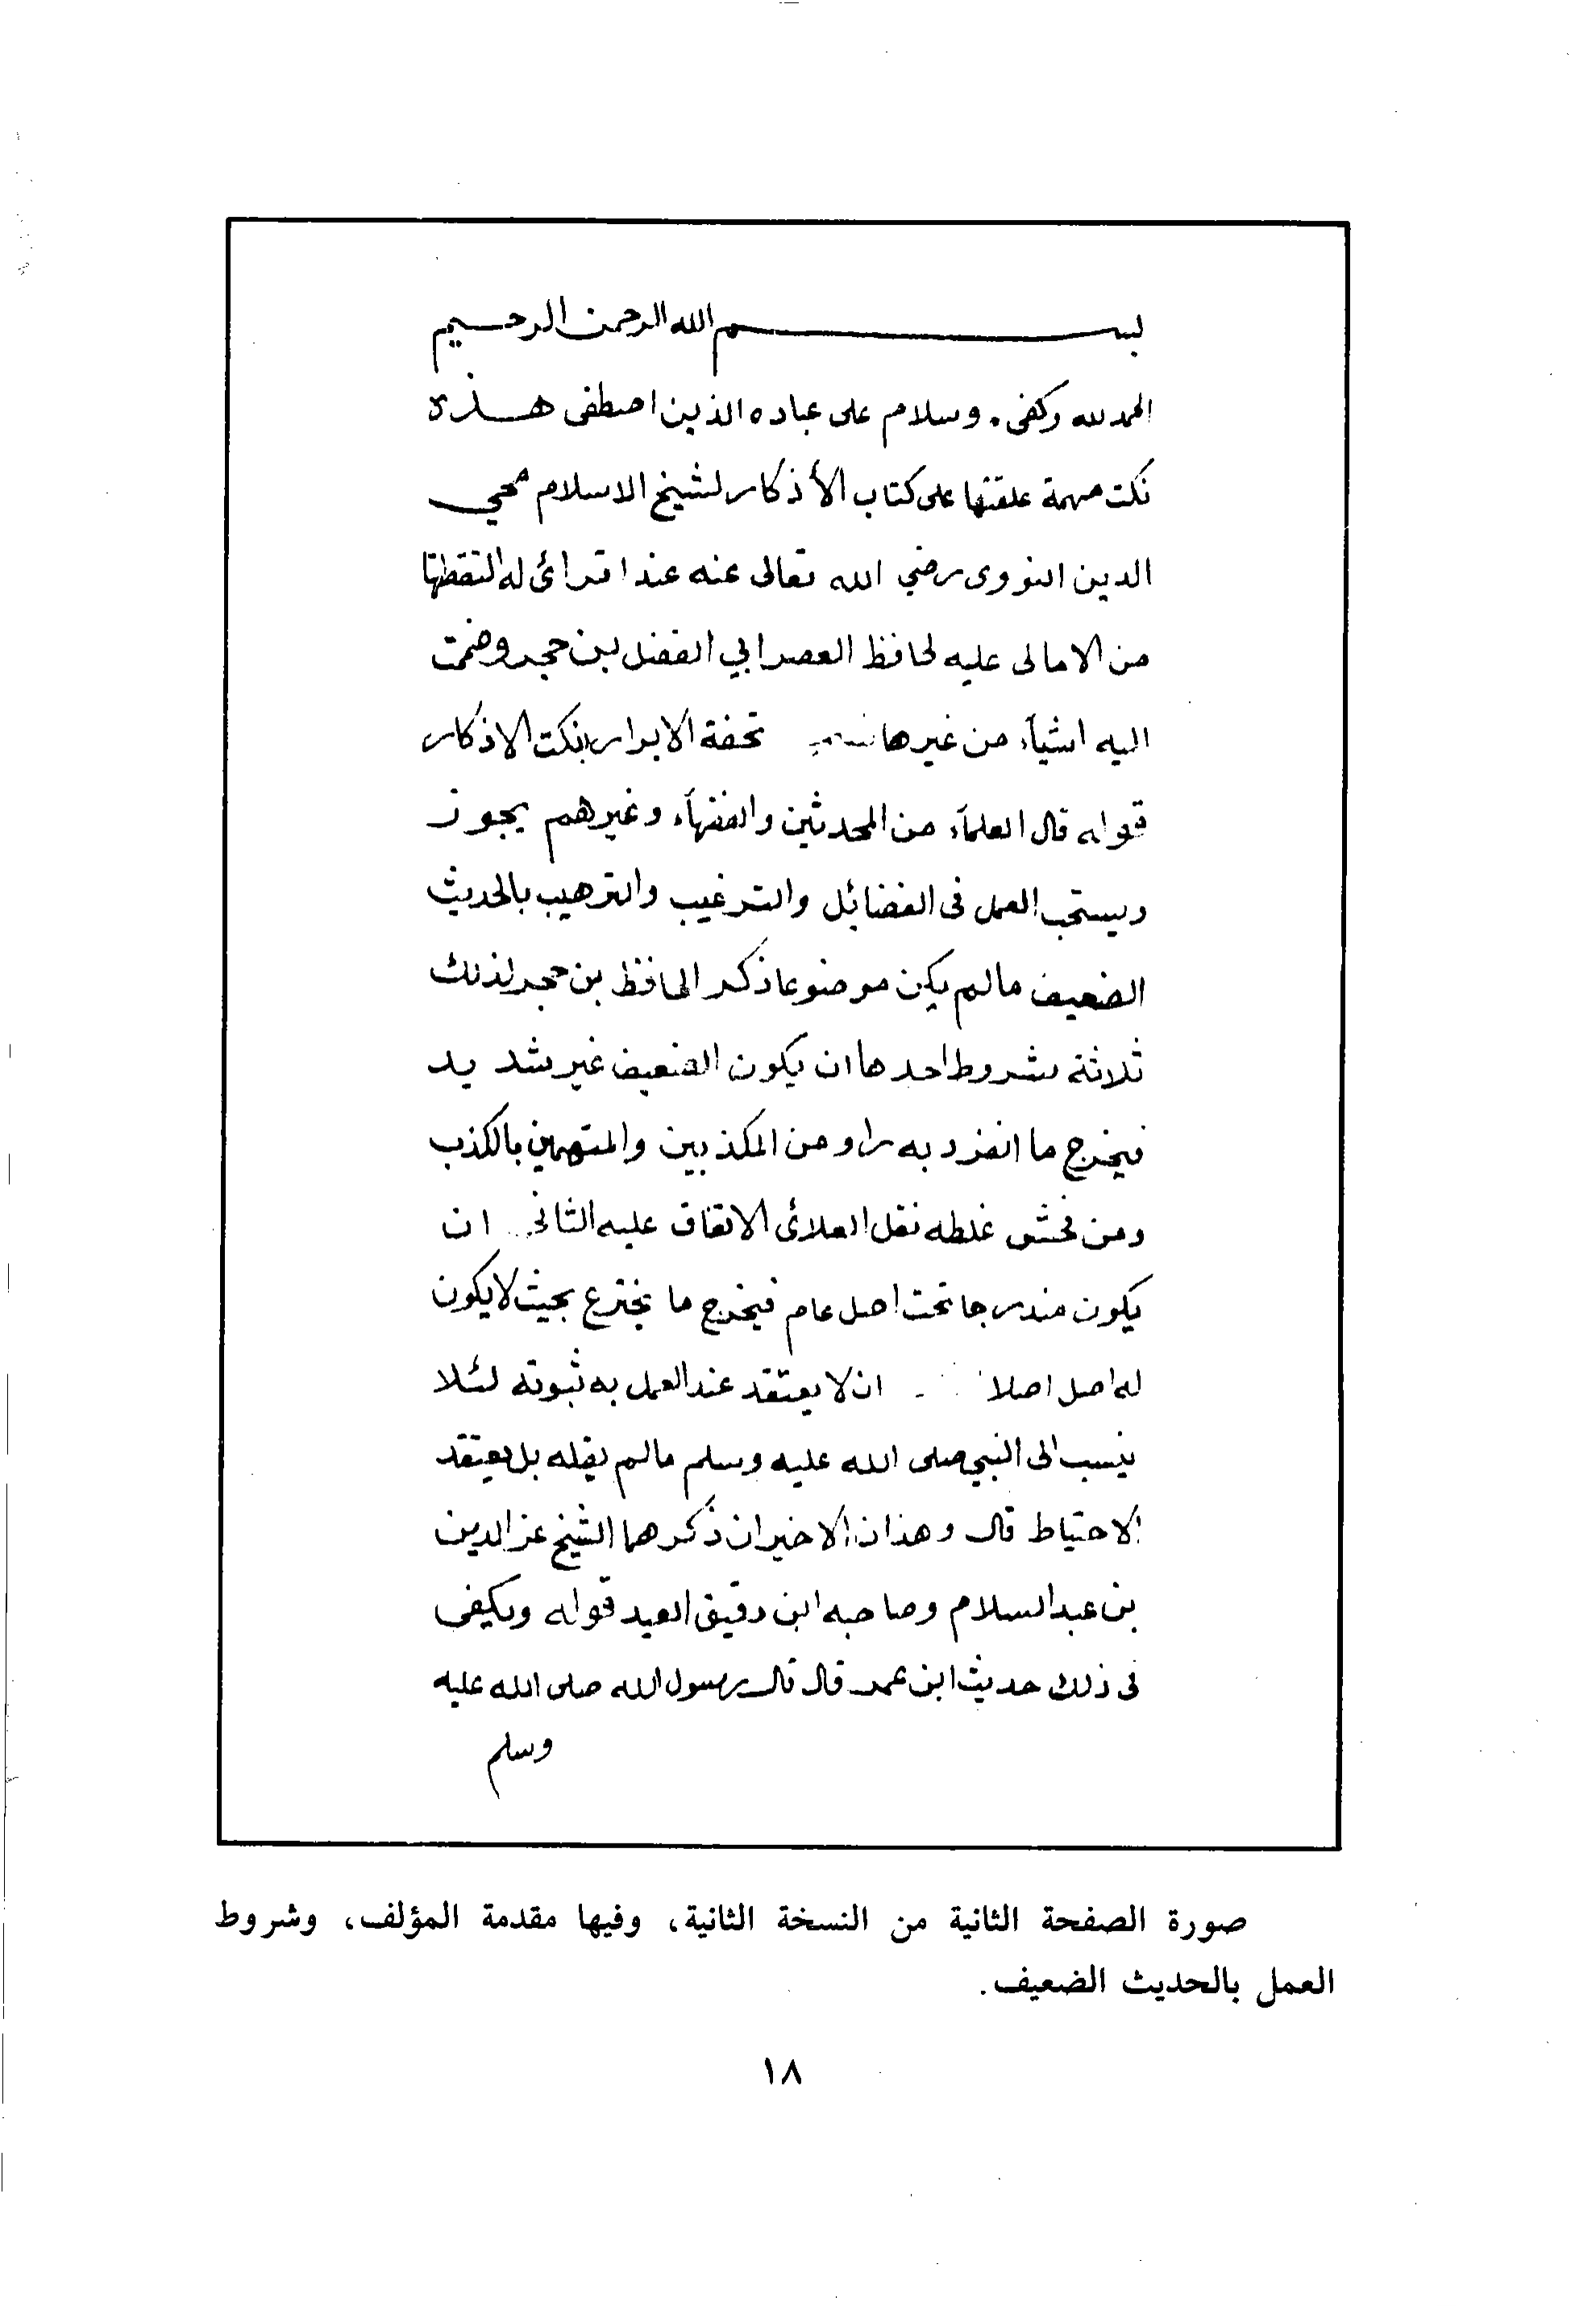 بسم الله الرحمن الرحيم
الحمد لله وكفى . وسلام على عباده الذين اصطفى هذه
نكت مهمة علقتها على كتاب الأذكار لشيخ الاسلام محيي
الدين النووى رضي الله تعالى عنه عند اقرائ له التقطتها
من الامالى عليه لحافظ العصر ابي الفضل بن حجر وضمت
اليه اشيآء من غيرها تحفة الابرار بنكت الاذكار
قوله قال العلمآء من المحدثين والفقهآء وغيرهم يجوز
ويستحب العمل فى الفضائل والترغيب والترهيب بالحديث
الضعيف مالم يكن موضوعا ذكر الحافظ بن حجر لذلك
ثلاثة شروط احدها ان يكون الضعيف غير شديد
فيخرج ما انفرد به راو من المكذبين والمتهمين بالكذب
ومن فحش غلطه نقل العلائ الاتفاق عليه الثانى ان
يكون مندرجا تحت اصل عام فيخرج ما يخترع بحيث لا يكون
له اصل اصلا ان لا يعتقد عند العمل به ثبوته لئلا
ينسب الى النبي صلى الله عليه وسلم مالم يقله بل يعتقد
الاحتياط قال وهذان الاخيران ذكرهما الشيخ عز الدين
بن عبد السلام وصاحبه ابن دقيق العيد قوله ويكفى
فى ذلك حديث ابن عمر قال قال رسول الله صلى الله عليه
وسلم
صورة الصفحة الثانية من النسخة الثانية، وفيها مقدمة المؤلف، وشروط
العمل بالحديث الضعيف.
١٨